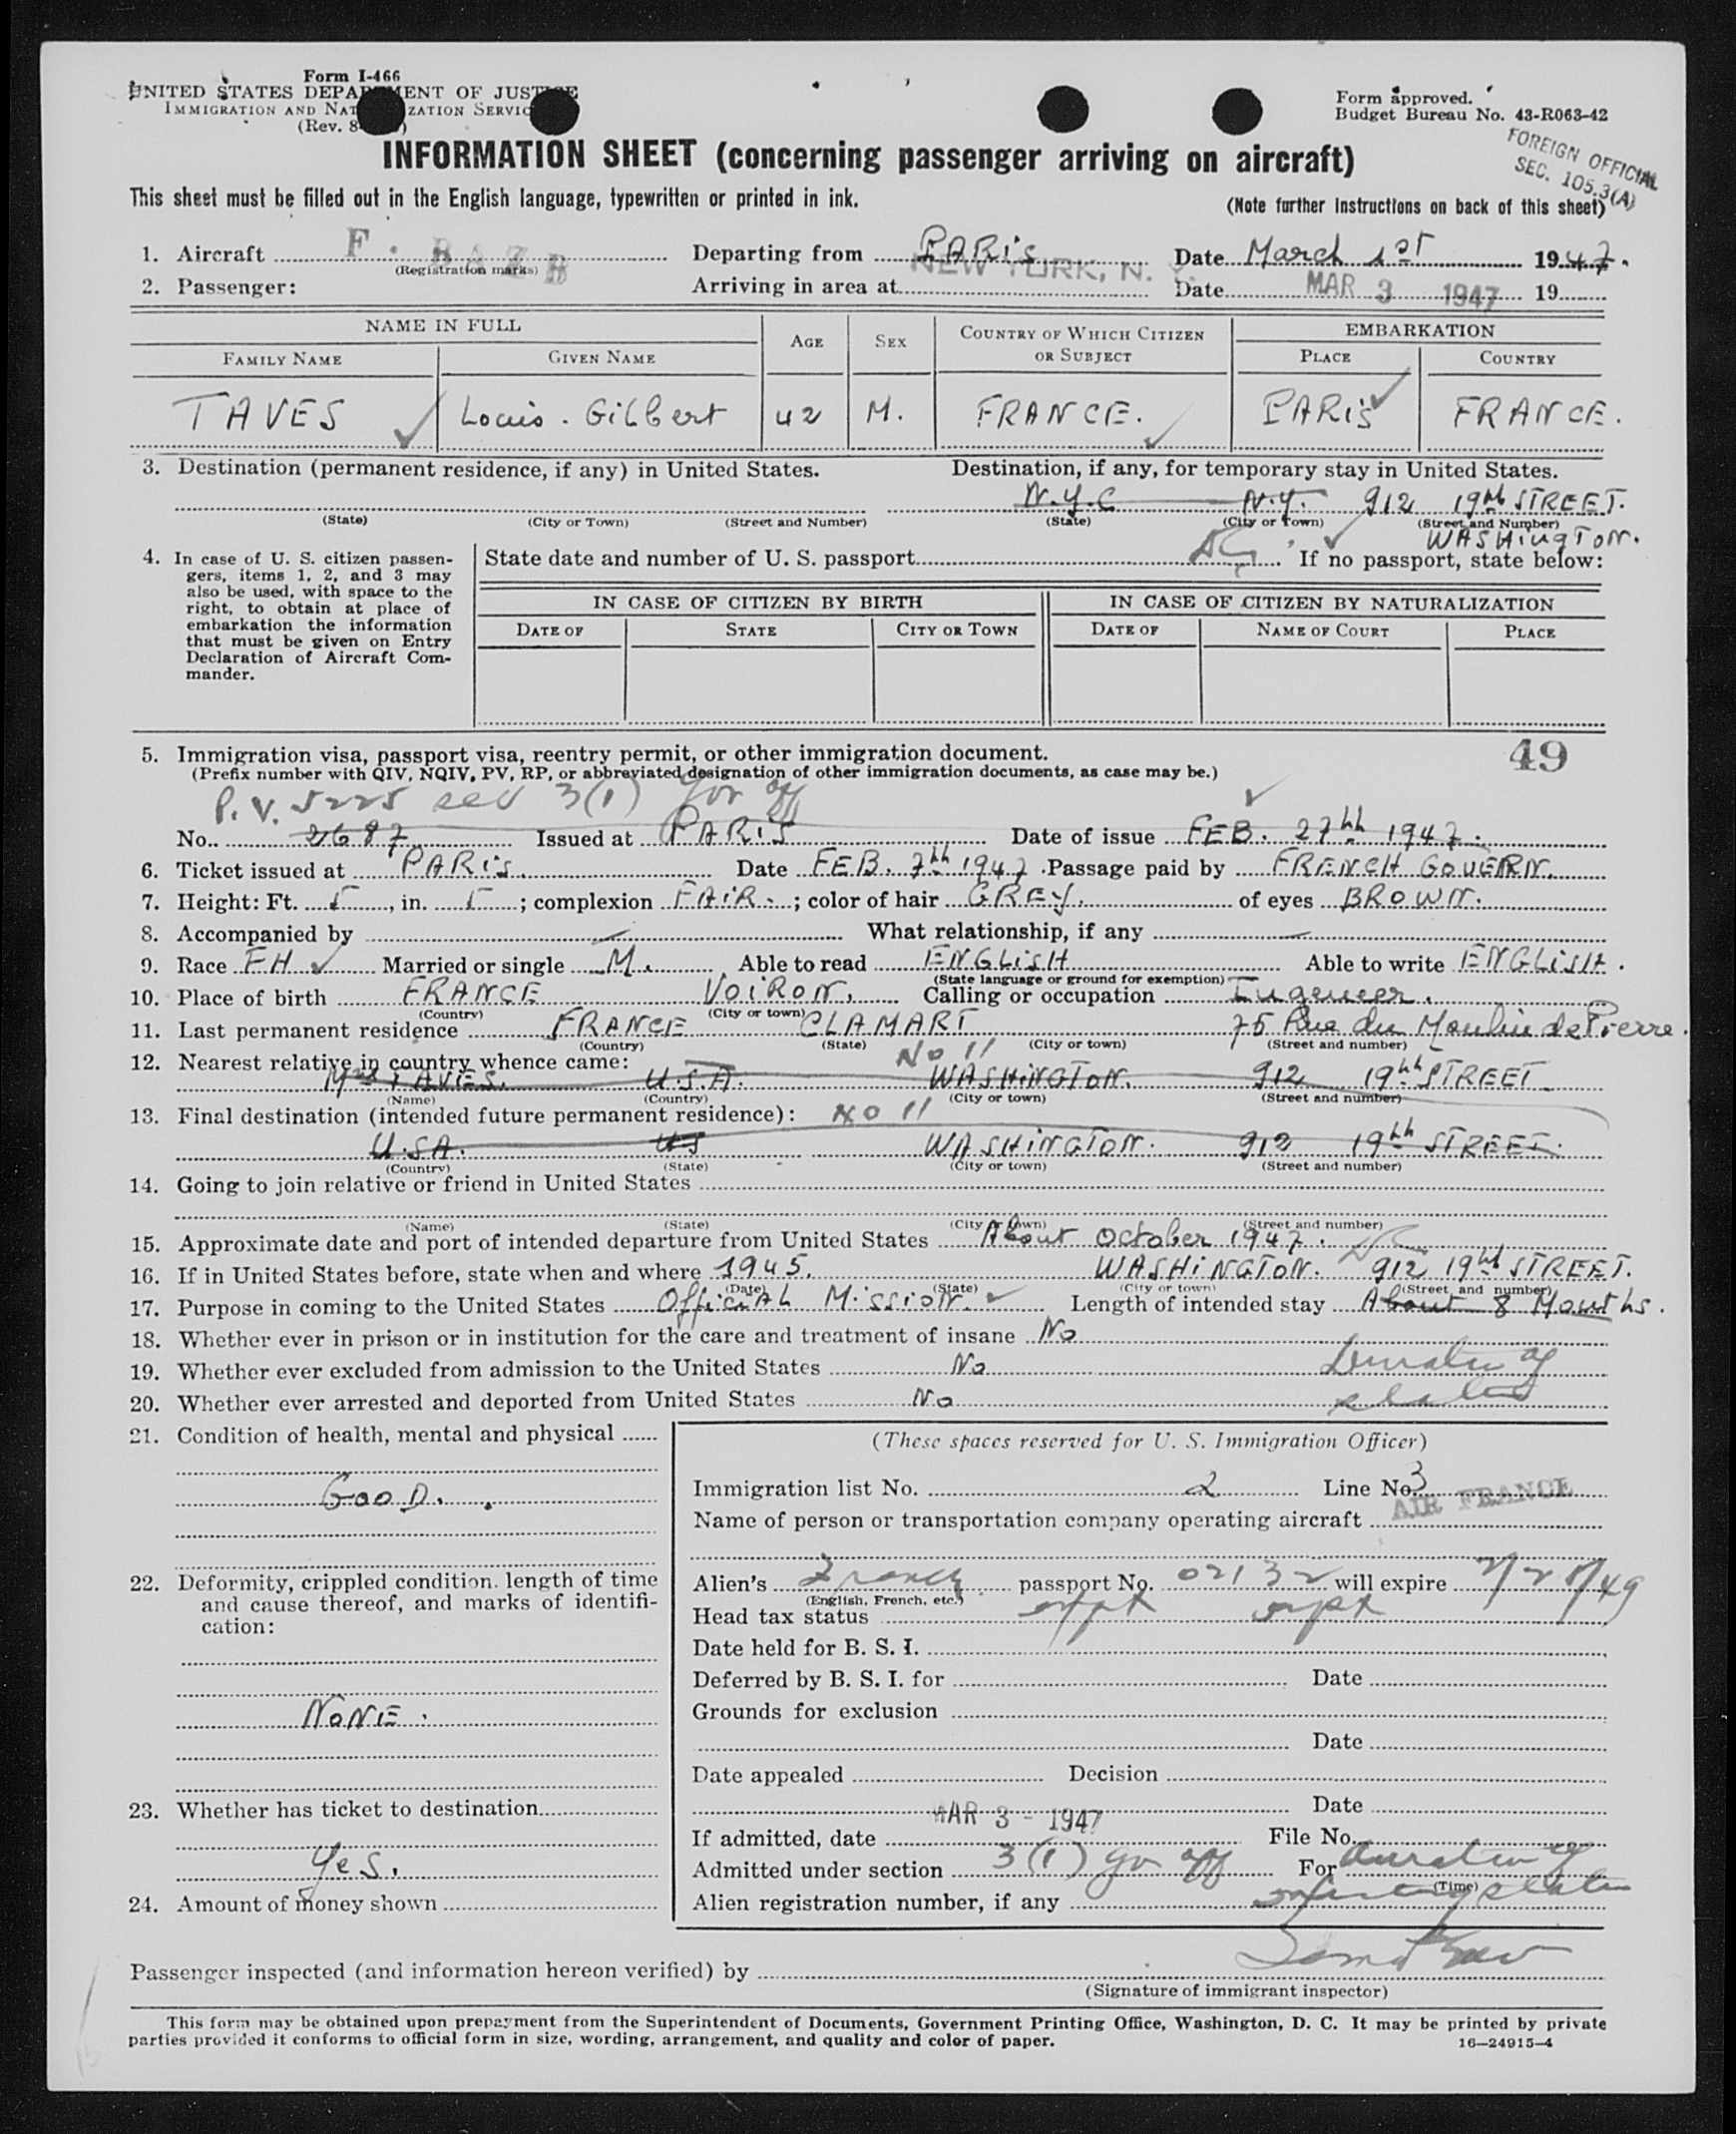 Form I-466
UNITED STATES DEPARTMENT OF JUSTICE
IMMIGRATION AND NATURALIZATION SERVICE
(Rev. 8-
Form approved.
Budget Bureau No. 43-R063-42
FOREIGN OFFICIAL
SEC. 105.3(A)
INFORMATION SHEET (concerning passenger arriving on aircraft)
This sheet must be filled out in the English language, typewritten or printed in ink.
(Note further instructions on back of this sheet)
1. Aircraft F. BAZB Departing from PARIS Date March 1st 1947.
(Registration marks)
2. Passenger: Arriving in area at NEW YORK, N. Y. Date MAR 3 1947 19
NAME IN FULL AGE SEX COUNTRY OF WHICH CITIZEN OR SUBJECT EMBARKATION
FAMILY NAME GIVEN NAME PLACE COUNTRY
TAVES Louis. Gilbert 42 M. FRANCE. PARIS FRANCE.
3. Destination (permanent residence, if any) in United States. Destination, if any, for temporary stay in United States.
N.Y.C N.Y. 912 19th STREET.
(State) (City or Town) (Street and Number) (State) (City or Town) (Street and Number)
WASHingTon.
4. In case of U. S. citizen passengers, items 1, 2, and 3 may also be used, with space to the right, to obtain at place of embarkation the information that must be given on Entry Declaration of Aircraft Commander.
State date and number of U. S. passport If no passport, state below:
IN CASE OF CITIZEN BY BIRTH IN CASE OF CITIZEN BY NATURALIZATION
DATE OF STATE CITY OR TOWN DATE OF NAME OF COURT PLACE
5. Immigration visa, passport visa, reentry permit, or other immigration document. 49
(Prefix number with QIV, NQIV, PV, RP, or abbreviated designation of other immigration documents, as case may be.)
P.V. 5225 sec 3(1) gov off
No. 2687 Issued at PARIS Date of issue FEB. 27th 1947.
6. Ticket issued at PARIS. Date FEB. 7th 1947. Passage paid by FRENCH GOVERN.
7. Height: Ft. 5, in. 5; complexion FAIR.; color of hair GREY. of eyes BROWN.
8. Accompanied by What relationship, if any
9. Race FH Married or single M. Able to read ENGLISH Able to write ENGLISH.
(State language or ground for exemption)
10. Place of birth FRANCE VOIRON. Calling or occupation Ingeneer.
(Country) (City or town)
11. Last permanent residence FRANCE CLAMART 75 Rue du Moulin de Pierre.
(Country) (State) (City or town) (Street and number)
12. Nearest relative in country whence came: No 11
Mrs TAVES. U.S.A. WASHINGTON. 912 19th STREET
(Name) (Country) (City or town) (Street and number)
13. Final destination (intended future permanent residence): NO 11
U.S.A. US WASHINGTON. 912 19th STREET.
(Country) (State) (City or town) (Street and number)
14. Going to join relative or friend in United States
(Name) (State) (City or town) (Street and number)
15. Approximate date and port of intended departure from United States About October 1947.
16. If in United States before, state when and where 1945. WASHINGTON. 912 19th STREET.
(Date) (State) (City or town) (Street and number)
17. Purpose in coming to the United States OfficiAL Mission. Length of intended stay About 8 Months.
18. Whether ever in prison or in institution for the care and treatment of insane No
19. Whether ever excluded from admission to the United States No Duration of
20. Whether ever arrested and deported from United States No status
21. Condition of health, mental and physical
GooD.
22. Deformity, crippled condition. length of time and cause thereof, and marks of identification:
NONE.
23. Whether has ticket to destination
Yes.
24. Amount of money shown
(These spaces reserved for U. S. Immigration Officer)
Immigration list No. 2 Line No. 3
Name of person or transportation company operating aircraft AIR FRANCE
Alien's French passport No. 02132 will expire 2/28/49
(English, French, etc.)
Head tax status
Date held for B. S. I.
Deferred by B. S. I. for Date
Grounds for exclusion
Date
Date appealed Decision
Date
If admitted, date MAR 3 - 1947 File No.
Admitted under section 3(1) gov off For duration of
(Time)
Alien registration number, if any status
Passenger inspected (and information hereon verified) by
(Signature of immigrant inspector)
This form may be obtained upon prepayment from the Superintendent of Documents, Government Printing Office, Washington, D. C. It may be printed by private
parties provided it conforms to official form in size, wording, arrangement, and quality and color of paper. 16—24915-4